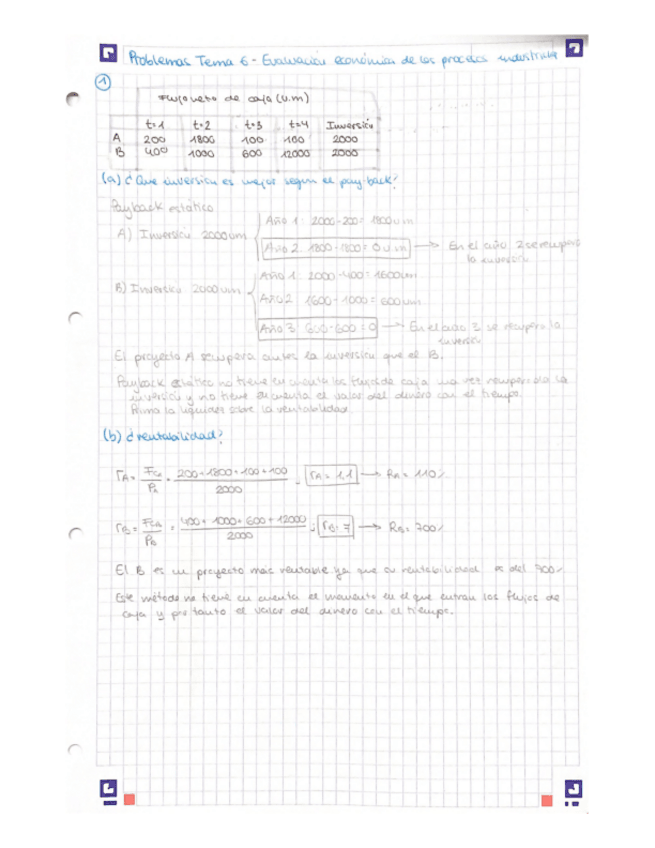 Problemas Tema 6 - Evaluación económica de los procesos industriales
1
Flujo neto de caja (u.m)
t=1 t=2 t=3 t=4 Inversión
A 200 1800 100 100 2000
B 400 1000 600 12000 2000
(a) ¿Que inversión es mejor según el pay-back?
Payback estático
A) Inversión 2000um
Año 1: 2000-200= 1800u.m
Año 2: 1800-1800= 0 u.m → En el año 2 se recupera
la inversión
B) Inversión 2000um
Año 1: 2000-400= 1600um
Año 2: 1600-1000= 600um
Año 3: 600-600=0 → En el año 3 se recupera la
inversión
El proyecto A recupera antes la inversión que el B.
Payback estático no tiene en cuenta los flujos de caja una vez recuperada la
inversión y no tiene en cuenta el valor del dinero con el tiempo.
Prima la liquidez sobre la rentabilidad
(b) ¿rentabilidad?
rA = FCA / PA = 200+1800+100+100 / 2000 = rA = 1,1 → RA = 110%
rB = FCB / PB = 400+1000+600+12000 / 2000 = rB = 7 → RB = 700%
El B es un proyecto más rentable ya que su rentabilidad es del 700%
Este método no tiene en cuenta el momento en el que entran los flujos de
caja y por tanto el valor del dinero con el tiempo.